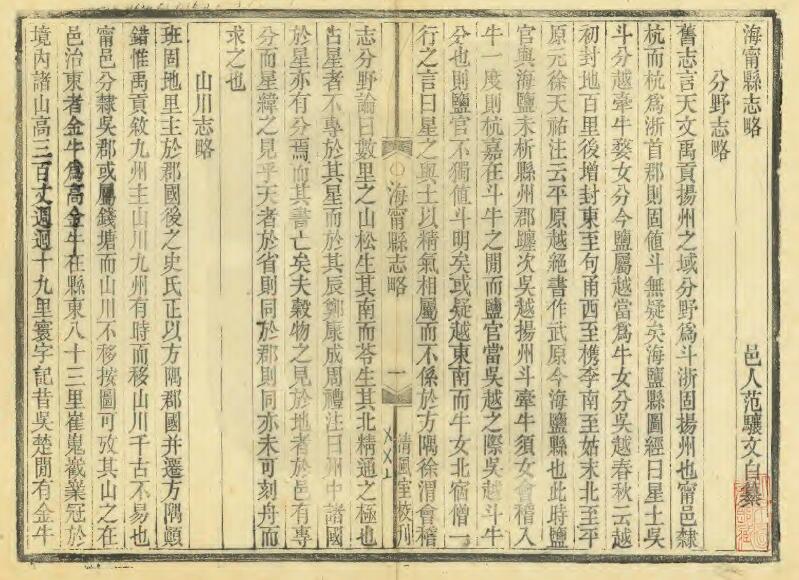 海甯縣志略
邑人范驤文白纂
分野志略
舊志言天文禹貢揚州之域分野為斗浙固揚州也甯邑隸
杭而杭為浙首郡則固值斗無疑矣海鹽縣圖經曰星土吳
斗分越牽牛婺女分今鹽屬越當為牛女分吳越春秋云越
初封地百里後增封東至句甬西至檇李南至姑末北至平
原元徐天祜注云平原越絕書作武原今海鹽縣也此時鹽
官與海鹽未析縣州郡躔次吳越揚州斗牽牛須女會稽入
牛一度則杭嘉在斗牛之閒而鹽官當吳越之際吳越斗牛
分也則鹽官不獨值斗明矣或疑越東南而牛女北宿僧一
行之言曰星之與土以精氣相屬而不係於方隅徐渭會稽
海甯縣志略
一
清風室校刊
志分野論曰數里之山松生其南而苓生其北精通之極也
占星者不專於其星而於其辰鄭康成周禮注曰州中諸國
於星亦有分焉而其書亡矣夫穀物之見於地者於邑有專
分而星緯之見乎天者於省則同於郡則同亦未可刻舟而
求之也
山川志略
班固地里主於郡國後之史氏正以方隅郡國并遷方隅顛
錯惟禹貢敘九州主山川九州有時而移山川千古不易也
甯邑分隸吳郡或屬錢塘而山川不移按圖可攷其山之在
邑治東者金牛為高金牛在縣東八十三里崔嵬巀嶪冠於
境內諸山高三百丈週迴十九里寰宇記昔吳楚閒有金牛